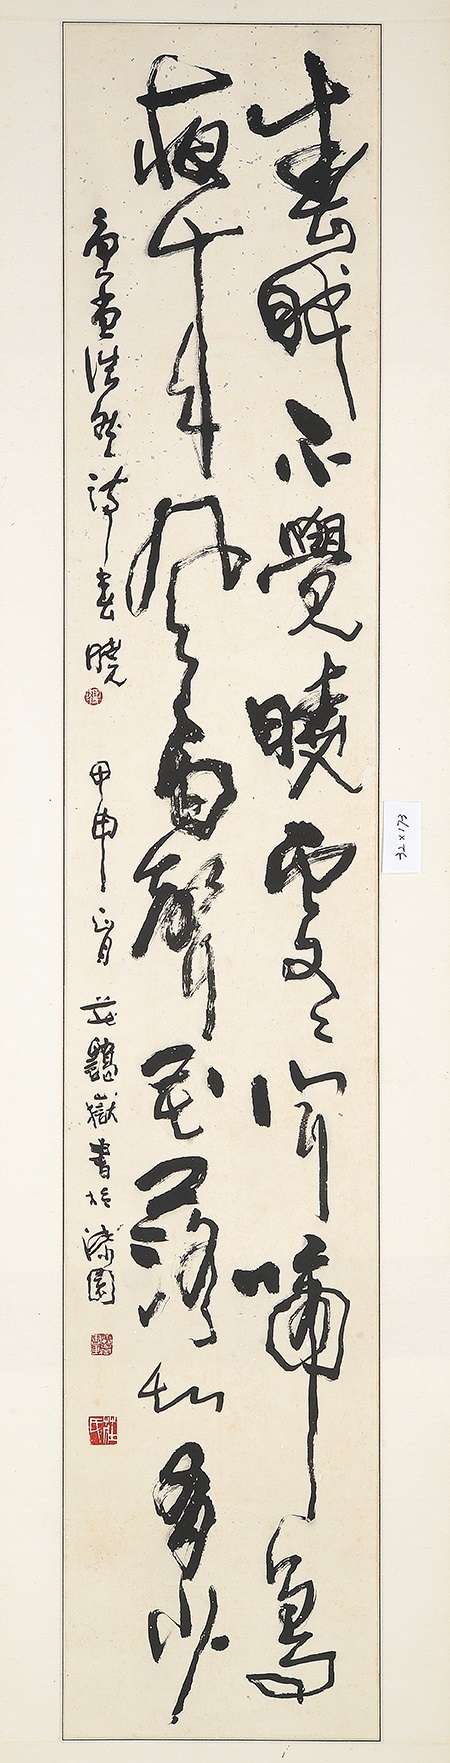 春眠不覺曉處々聞啼鳥
夜來風雨聲花落知多少
孟浩然詩春曉 甲申 月 莊 嶽書於漆園
32×173